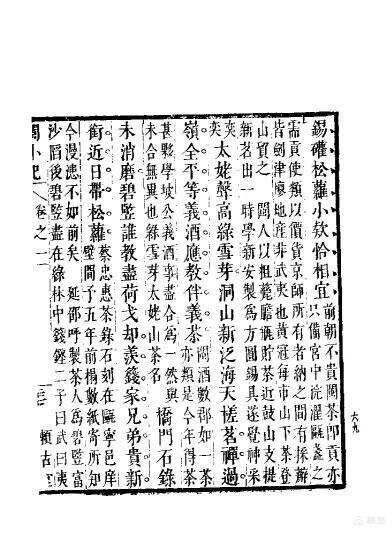 錫礶松蘿小欵恰相宜 前朝不貴閩茶即貢亦
只備宮中浣濯甌盞之
需貢使類以價貨京師所有者納之間有採辦
皆劍津廖地產非武夷也黃冠每市山下茶登
山貿之 閩人以粗瓷膽瓶貯茶近鼓山支提
新茗出一時學新安製爲方圓錫具遂覺神采
奕奕 太姥聲高綠雪芽洞山新泛海天槎茗禪過
嶺全平等義酒應教伴義茶 閩酒數郡如一茶
亦類是今年得茶
甚夥學坡公義酒事盡合爲一然與
未合無異也綠雪芽太姥山茶名 橋門石錄
未消磨碧豎誰教盡荷戈却羨籛家兄弟貴新
銜近日帶松蘿 蔡忠惠茶錄石刻在甌寧邑庠
壁間予五年前榻數紙寄所知
今漫漶不如前矣 延郡呼製茶人爲碧豎富
沙陷後碧豎盡在綠林中籛鏗二子曰武曰夷
閩小紀 卷之一 賴古堂
六九